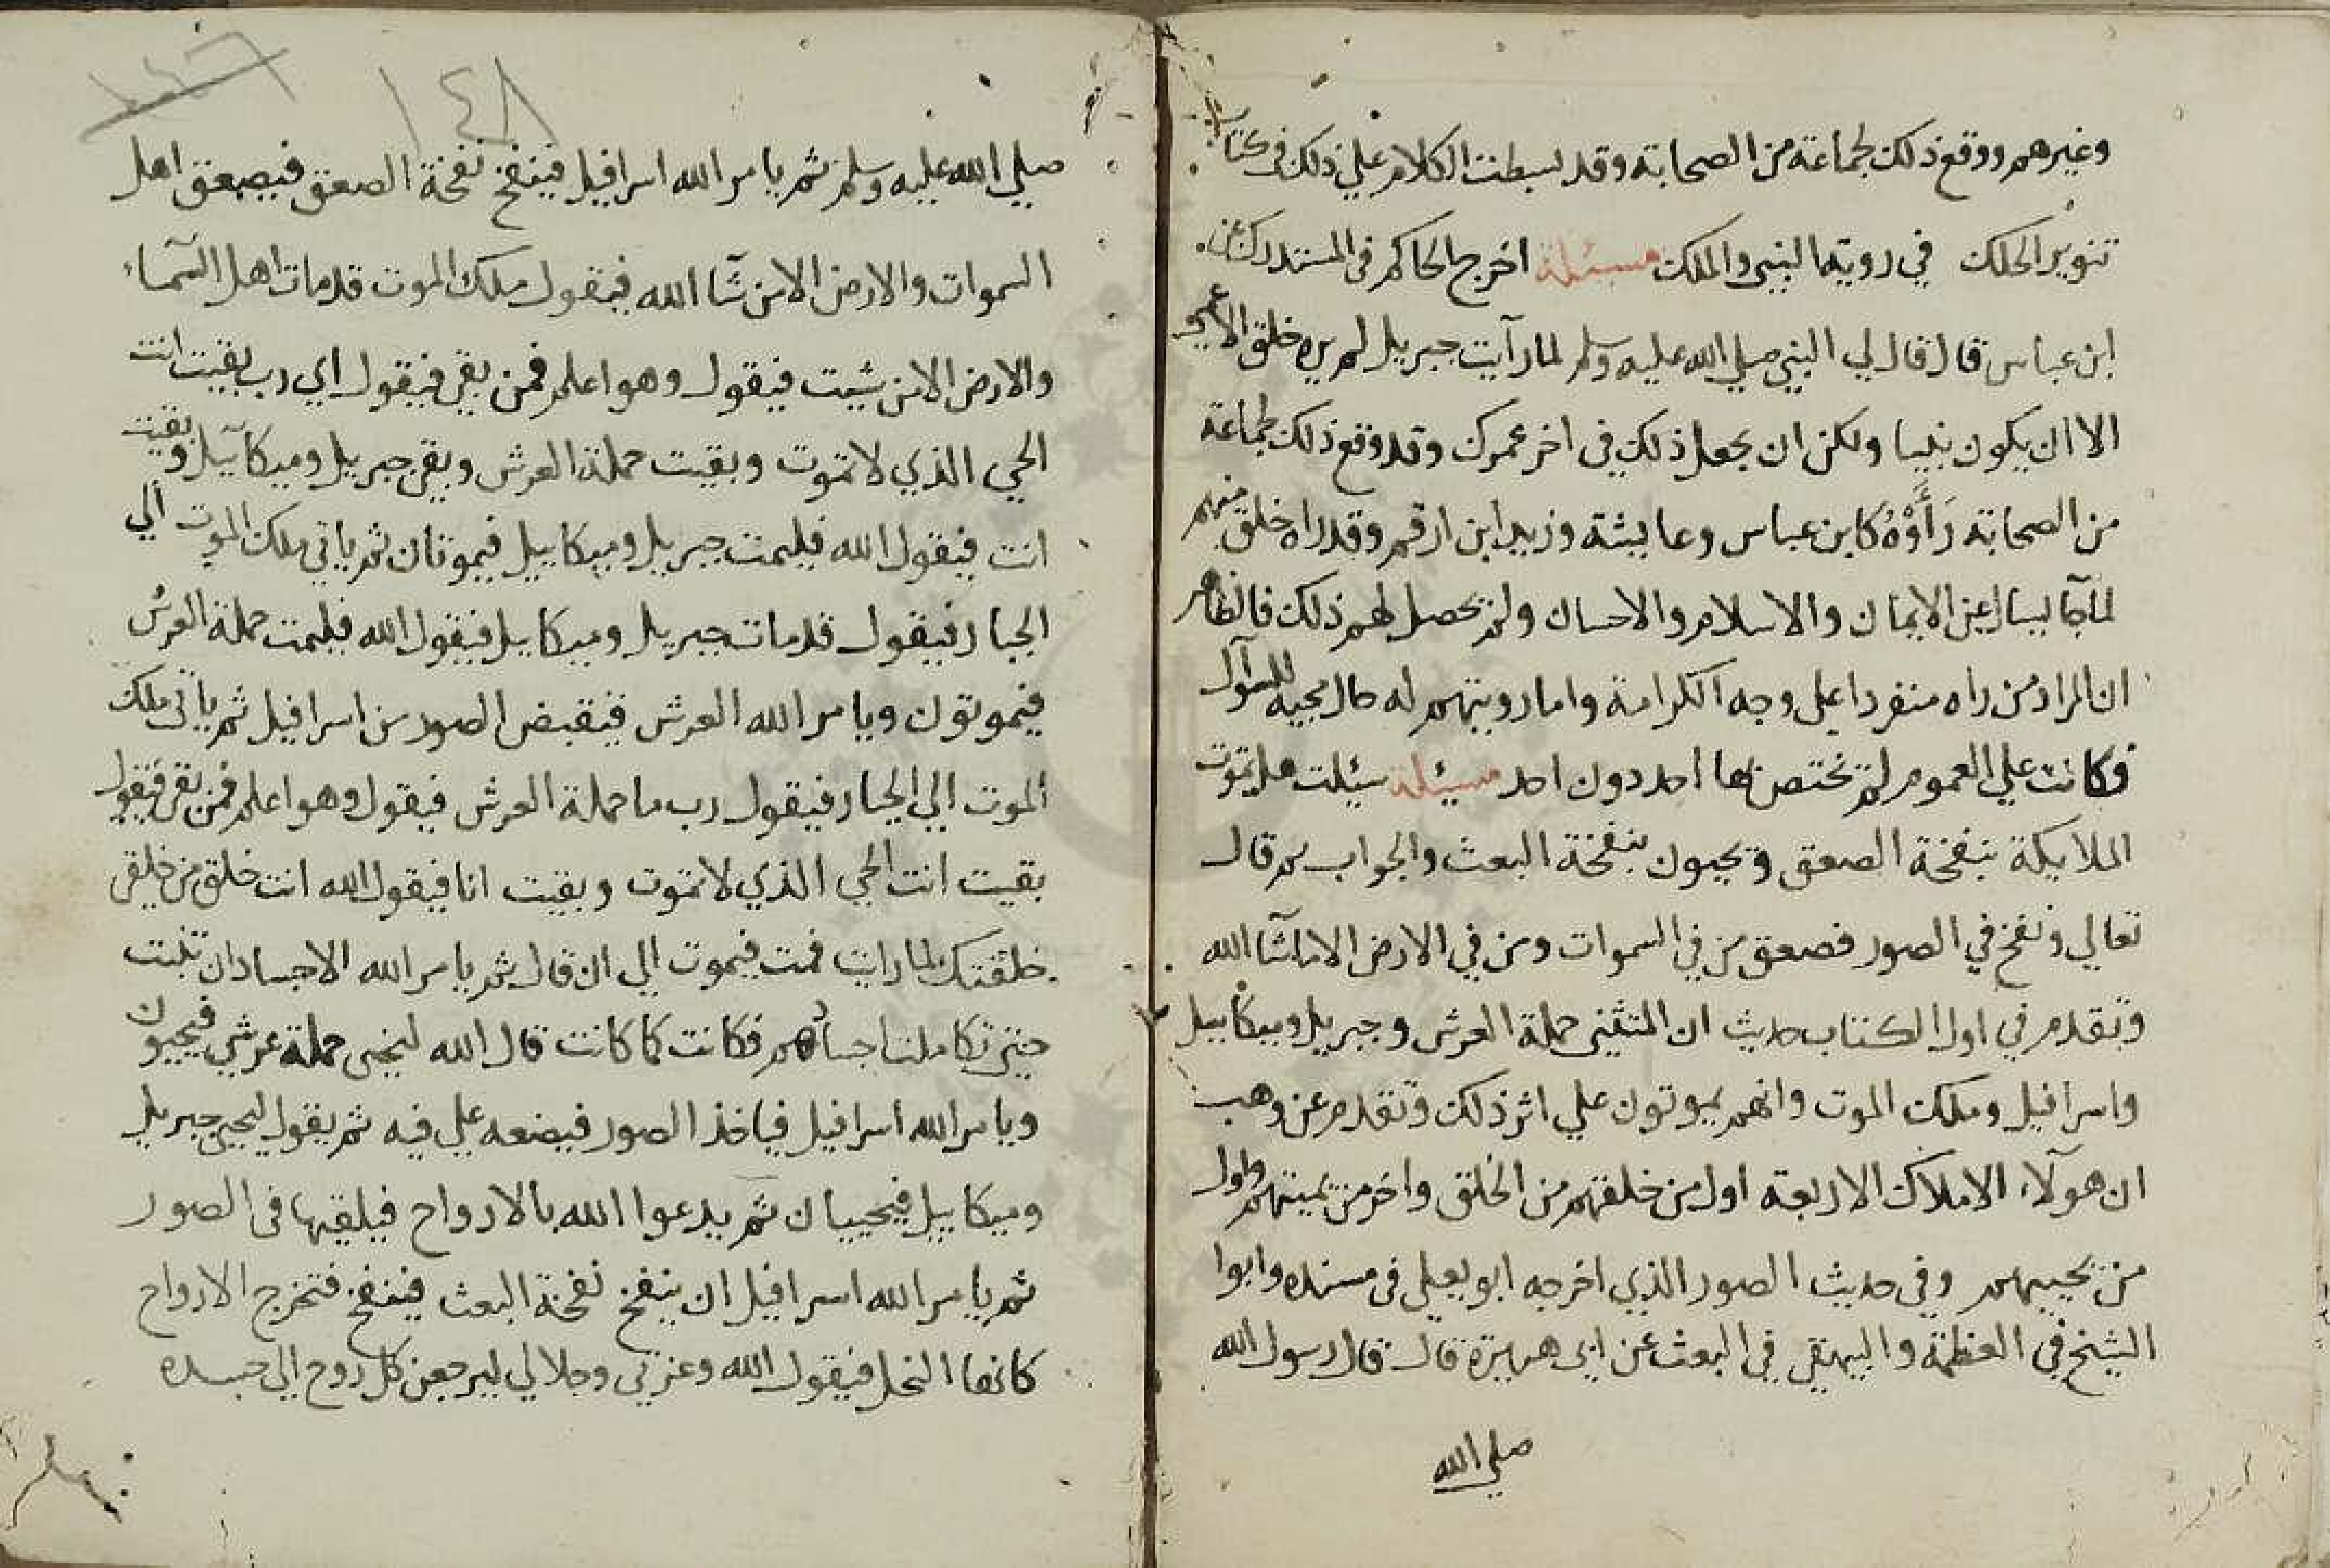 وغيرهم ووقع ذلك لجماعة من الصحابة وقد بسطت الكلام علي ذلك في كتاب
تنوير الحلك في روية النبي والملك مسئلة اخرج الحاكم في المستدرك عن
ابن عباس قال قال لي النبي صلي الله عليه وسلم لما رآيت جبريل لم يره خلق الا عمي
الا ان يكون نبيا ولكن ان يجعل ذلك في اخر عمرك وقد وقع ذلك لجماعة
من الصحابة رَأَوْهُ كابن عباس وعايشة وزيد ابن ارقم وقد راه خلق منهم
لما جآ يسال عن الايمان والاسلام والاحسان ولم يحصل لهم ذلك فالظاهر
ان المراد من راه منفردا علي وجه الكرامة واما رويتهم له حال مجيه للسوآل
فكانت علي العموم لم تختص بها احد دون احد مسيئلة سيئلت هل تموت
الملايكة بنفخة الصعق ويحيون بنفخة البعث والجواب نعم قال
تعالي ونفخ في الصور فصعق من في السموات ومن في الارض الا ماشآ الله
وتقدم في اول الكتاب حديث ان المتثني حملة العرش وجبريل وميكاييل
واسرافيل وملك الموت وانهم يموتون علي اثر ذلك وتقدم عن وهب
ان هولآء الاملاك الاربعة اول من خلقهم من الخلق واخر من يميتهم واول
من يحييهم وفي حديث الصور الذي اخرجه ابو يعلي في مسنده وابوا
الشيخ في العظمة والبيهقي في البعث عن ابي هريرة قال قال رسول الله
صلي الله
١٤٨
صلي الله عليه وسلم ثم يامر الله اسرافيل فينفخ نفخة الصعق فيصعق اهل
السموات والارض الا من شآ الله فيقول ملك الموت قد مات اهل السمآء
والارض الا من شيت فيقول وهو اعلم فمن بقي فيقول اي رب بقيت انت
الحي الذي لا تموت وبقيت حملة العرش وبقي جبريل وميكآييل وبقيت
انت فيقول الله فليمت جبريل وميكاييل فيموتان ثم ياتي ملك الموت الي
الجبار فيقول قد مات جبريل وميكاييل فيقول الله فليمت حملة العرش
فيموتون ويامر الله العرش فيقبض الصور من اسرافيل ثم ياتي ملك
الموت الي الجبار فيقول رب ما حملة العرش فيقول وهو اعلم فمن بقي فيقول
بقيت انت الحي الذي لا تموت وبقيت انا فيقول الله انت خلق من خلقي
خلقتك لما رايت فمت فيموت الي ان قال ثم يامر الله الاجساد ان تنبت
حتي تكاملت اجسادهم فكانت كما كانت قال الله ليحيي حملة عرشي فيحيون
ويامر الله اسرافيل فياخذ الصور فيضعه علي فيه ثم يقول ليحيي جبريل
وميكاييل فيحييان ثم يدعوا الله بالارواح فيلقيها في الصور
ثم يامر الله اسرافيل ان ينفخ نفخة البعث فينفخ فتخرج الارواح
كانها النحل فيقول الله وعزتي وجلالي ليرجعن كل روح الي جسده